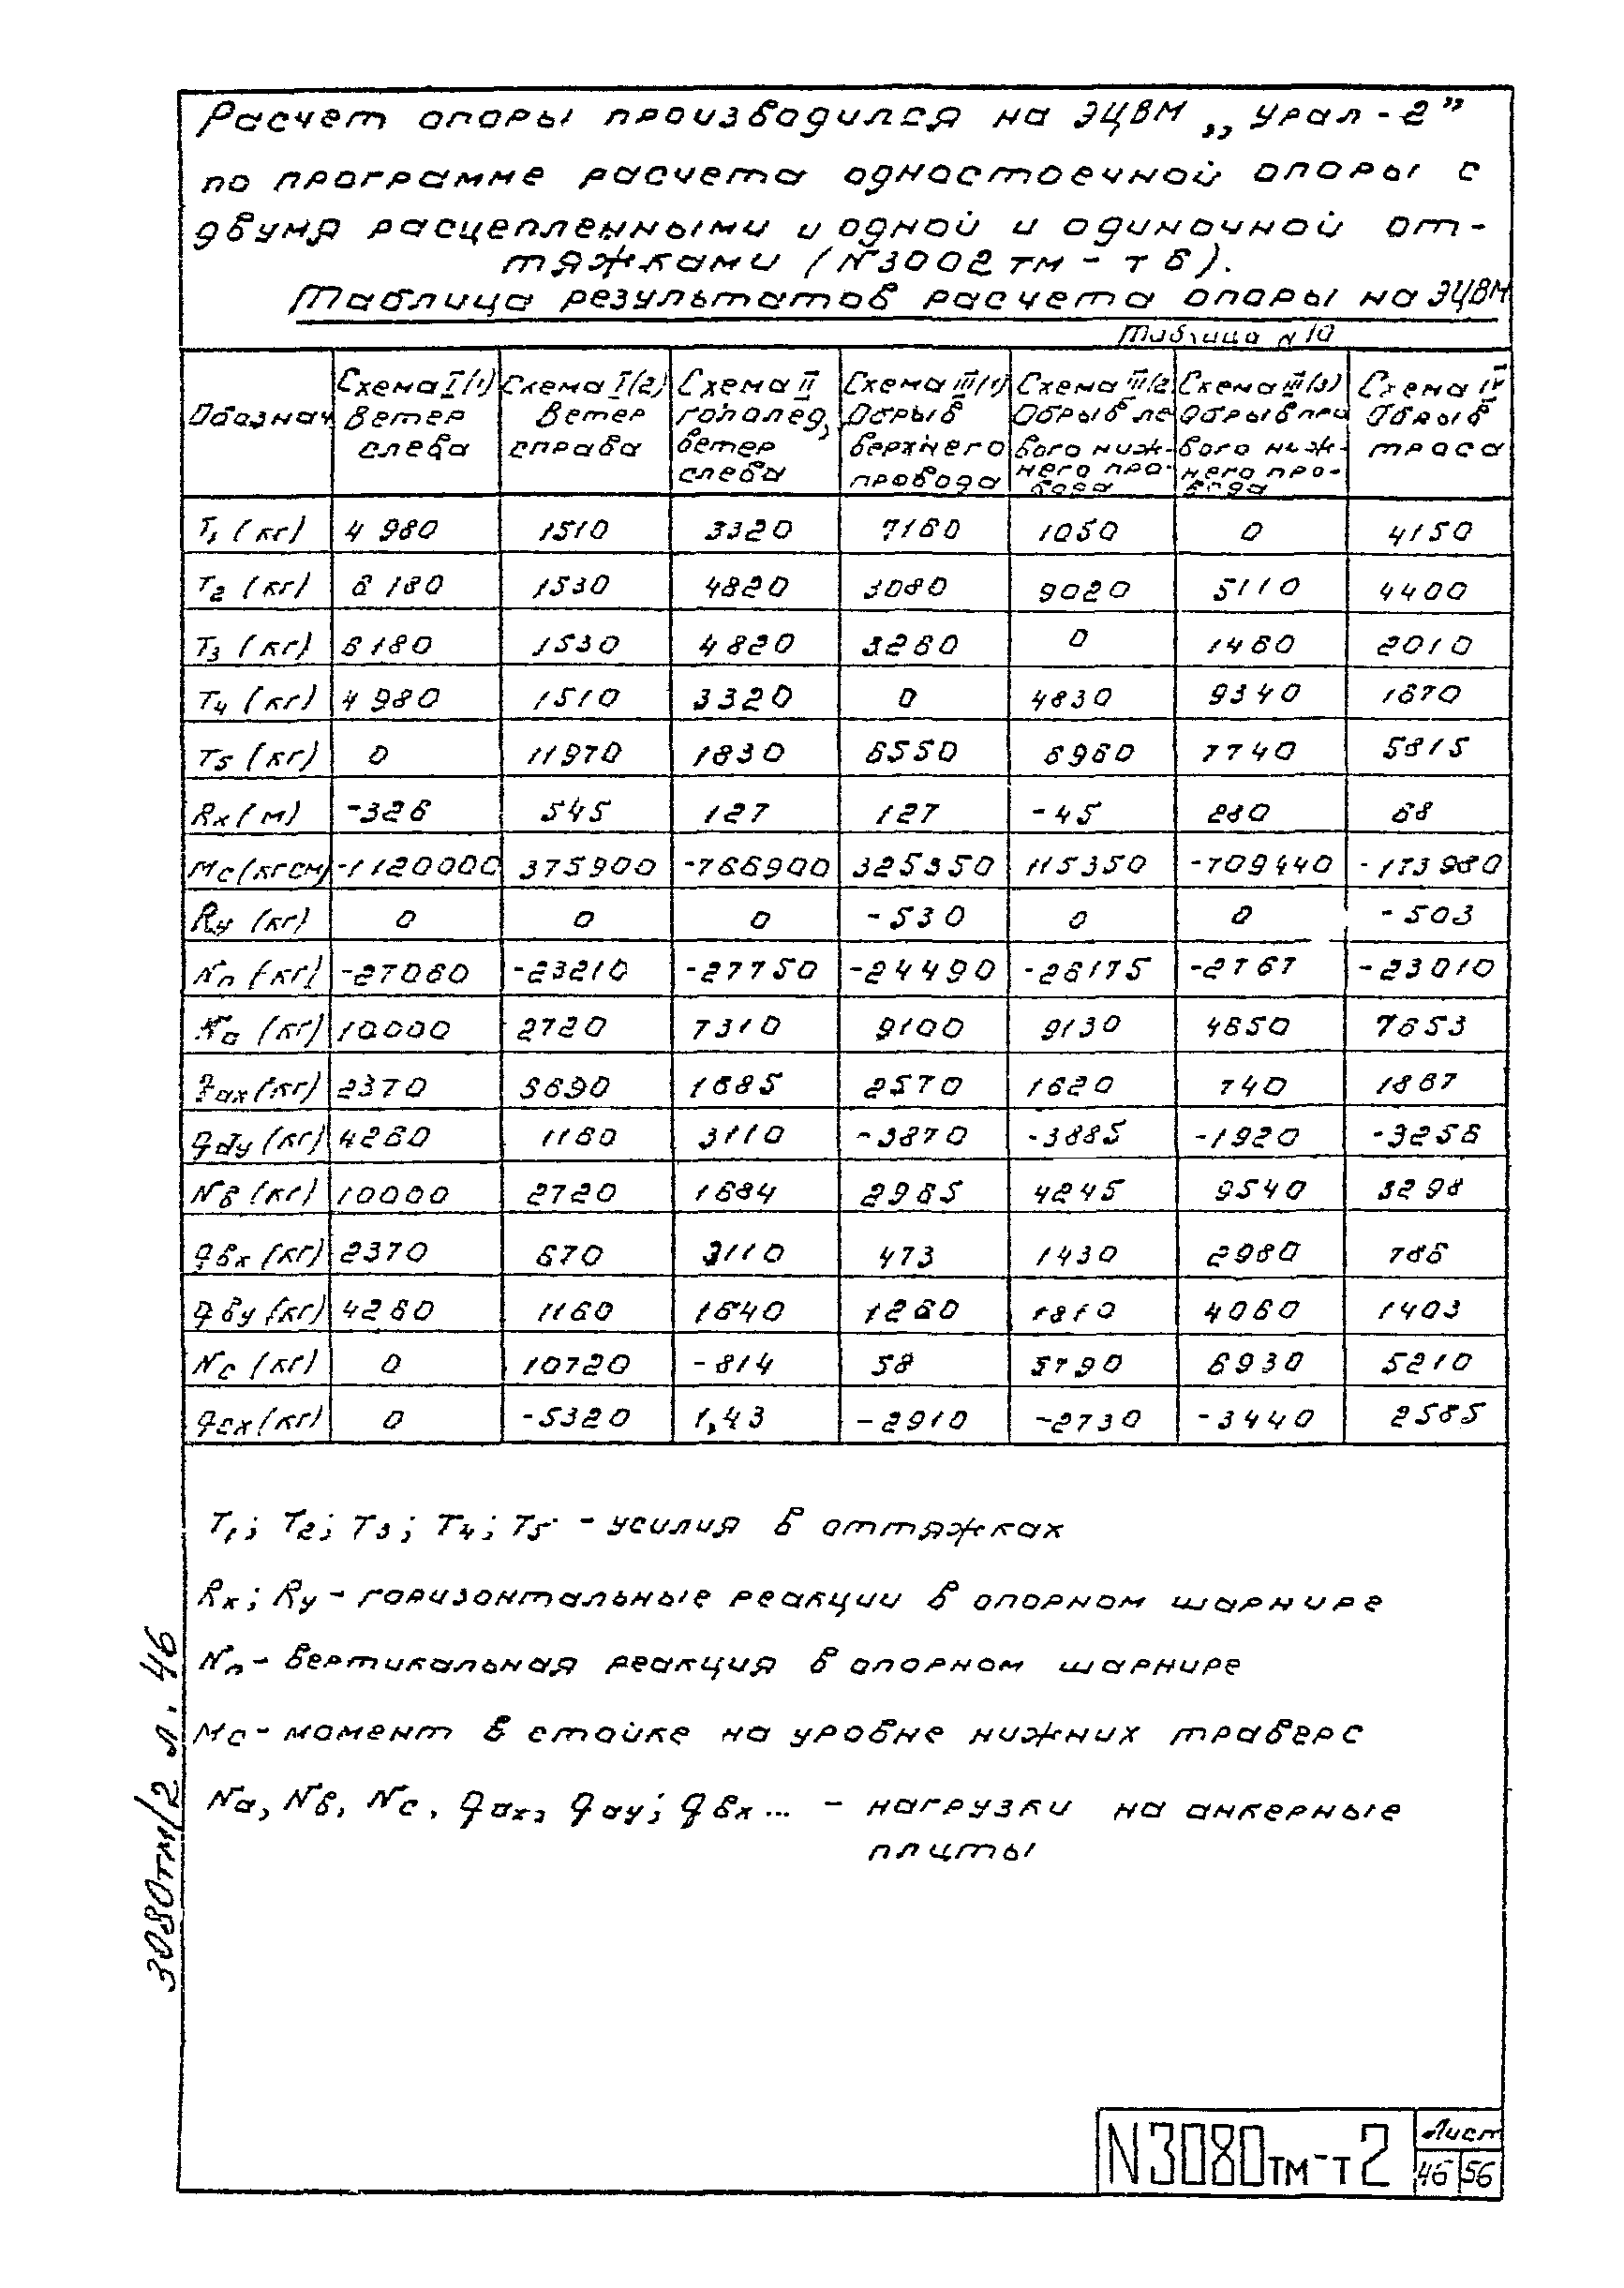 Расчет опоры производился на ЭЦВМ „Урал-2”
по программе расчета одностоечной опоры с
двумя расщепленными и одной и одиночной от-
тяжками (N3002тм-т6).
Таблица результатов расчета опоры на ЭЦВМ
Таблица N10
Обознач. | Схема I(1) Ветер слева | Схема I(2) Ветер справа | Схема II гололед, ветер слева | Схема III(1) Обрыв верхнего провода | Схема III(2) Обрыв левого нижнего провода | Схема III(3) Обрыв правого нижнего провода | Схема IV Обрыв троса
T1 (кг) 4980 1510 3320 7160 1050 0 4150
T2 (кг) 6180 1530 4820 3080 9020 5110 4400
T3 (кг) 6180 1530 4820 3260 0 1460 2010
T4 (кг) 4980 1510 3320 0 4830 9340 1670
T5 (кг) 0 11970 1830 6550 6960 7740 5815
Rx (м) -326 545 127 127 -45 280 68
Mc (кгсм) -1120000 375900 -766900 325350 115350 -709440 -173980
Ry (кг) 0 0 0 -530 0 0 -503
Nп (кг) -27060 -23210 -27750 -24490 -26175 -2767 -23010
Na (кг) 10000 2720 7310 9100 9130 4650 7653
qax (кг) 2370 5690 1685 2570 1620 740 1867
qay (кг) 4260 1160 3110 -3870 -3885 -1920 -3256
Nв (кг) 10000 2720 1684 2965 4245 9540 3298
qвx (кг) 2370 670 3110 473 1430 2980 786
qвy (кг) 4260 1160 1640 1260 1810 4060 1403
Nc (кг) 0 10720 -814 58 5790 6930 5210
qcx (кг) 0 -5320 1,43 -2910 -2730 -3440 2585
T1; T2; T3; T4; T5 - усилия в оттяжках
Rx; Ry - горизонтальные реакции в опорном шарнире
Nп - вертикальная реакция в опорном шарнире
Mc - момент в стойке на уровне нижних траверс
Na, Nв, Nc, qax, qay; qвx... - нагрузки на анкерные
плиты
3080тм/2 л. 46
N3080тм-т2
Лист
46 56